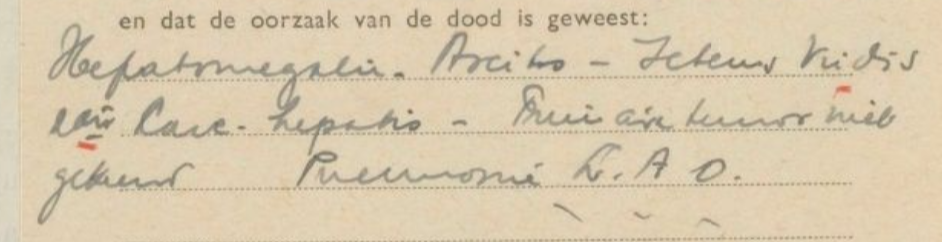 en dat de oorzaak van de dood is geweest:
Hepatomegalie. Ascites - Icterus Viridis
Carc. hepatis - Primaire tumor niet
gekend Pneumonie L. A O.